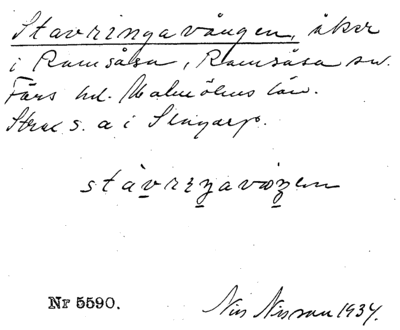 Stavringavången, åker
i Ramsåsa, Ramsåsa sn.
Färs hd. Malmöhus län.
Strax s. a i Slngarp.
stavriŋavɷŋen
Nr 5590.
Nils Nilsson 1934.